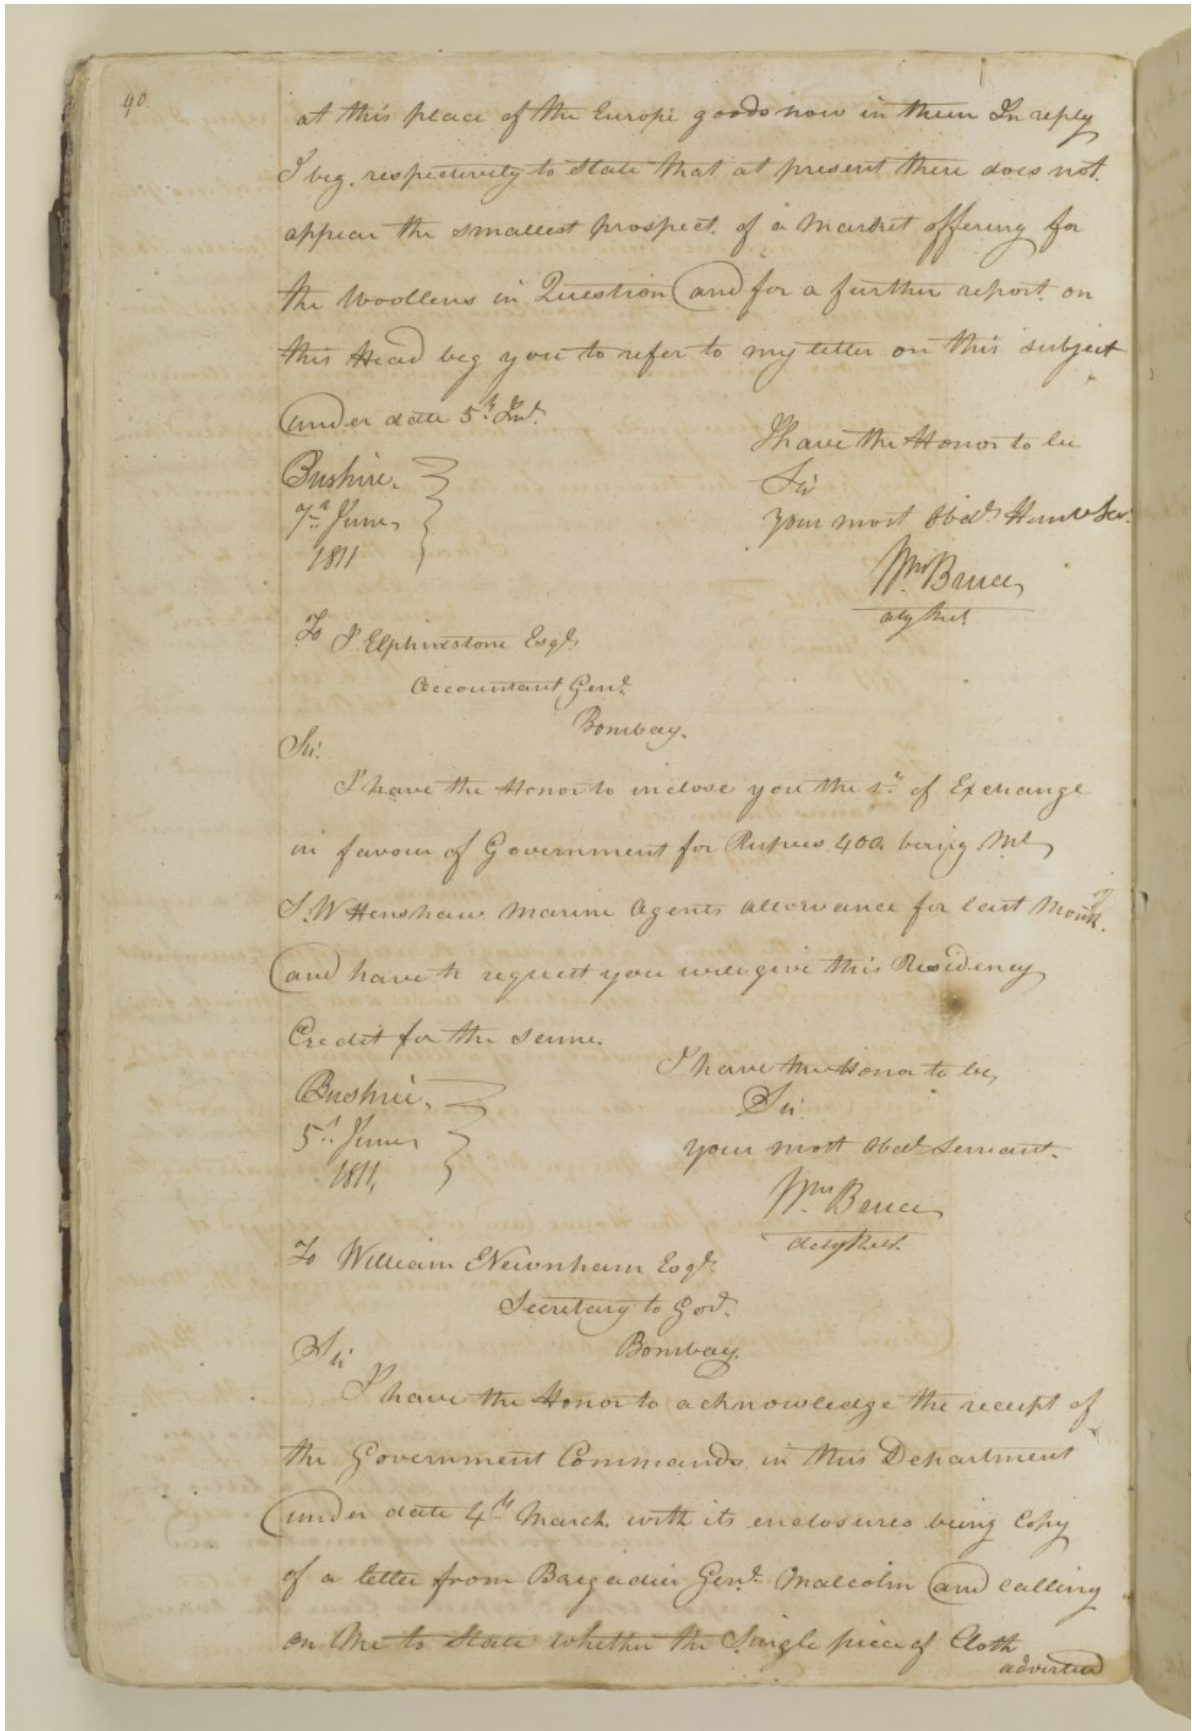 90
at this place of the Europe goods now in them In reply
I beg. respectively to State that at present there does not.
appear the smallest prospect. of a Market offering for
the Woollens in Question and for a further report. on
this Head beg you to refer to my letter on this subject
under date 5th Inst.
I have the Honor to be
Sir
Your most Obedt. Humble Ser.
Bushire.
7th June
1811
Wm. Bruce
Actg Rest.
To J Elphinstone Esqr.
Accountant Genl.
Bombay.
Sir.
I have the Honor to inclose you the 1st. of Exchange
in favour of Government for Rupees 400 being Mr
S. W Henshaw Marine Agents Allowance for last Month.
and have to request you will give this Residency
Credit for the same.
I have the Honor to be,
Sir
Your most Obedt. Servant.
Bushire.
5th. June
1811,
Wm. Bruce
Actg Rest.
To William Newnham Esqr.
Secretary to Govt.
Bombay.
Sir
I have the Honor to acknowledge the receipt of
the Government Commands in this Department
under date 4th March. with its enclosures being Copy
of a letter from Brigadier Genl. Malcolm and calling
on Me to State whether the Single piece of Cloth
adverted